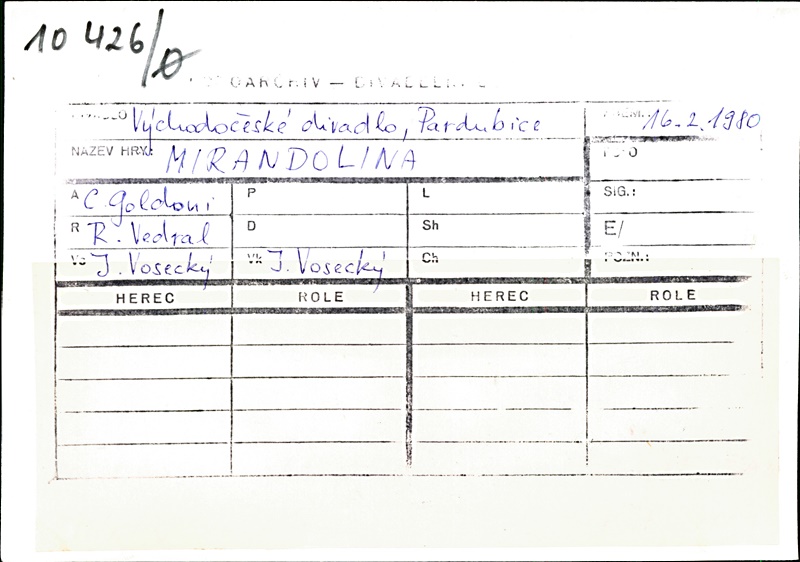 10 426/Ø
DIVADLO Východočeské divadlo, Pardubice PREM.: 16.2.1980
NÁZEV HRY: MIRANDOLINA FOTO
A C. Goldoni P L SIG.:
R R. Vedral D Sh E/
Vs J. Vosecký Vk J. Vosecký Ch POZN.:
HEREC ROLE HEREC ROLE